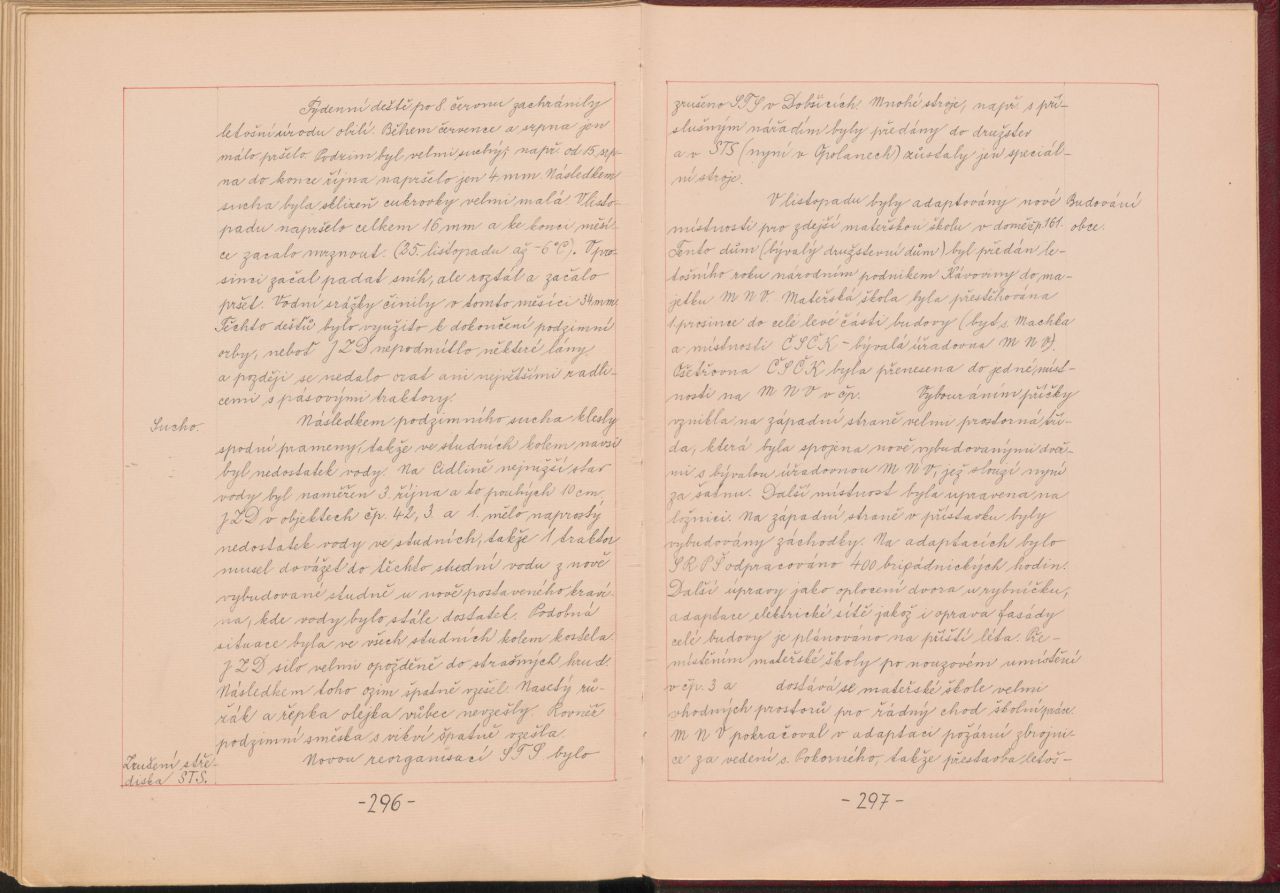 Týdenní deště po 8. červnu zachránily
letošní úrodu obilí. Během července a srpna jen
málo pršelo. Podzim byl velmi suchý; např. od 15. srp-
na do konce října napršelo jen 4 mm. Následkem
sucha byla sklizeň cukrovky velmi malá. V listo-
padu napršelo celkem 16 mm a ke konci měsí-
ce začalo mrznout. (25. listopadu až -6°C). V pro-
sinci začal padat sníh, ale roztál a začalo
pršet. Vodní srážky činily v tomto měsíci 34 mm.
Těchto dešťů bylo využito k dokončení podzimní
orby, neboť JZD nepodmítlo některé lány
a později se nedalo orat ani největšími radli-
cemi s pásovými traktory.
Sucho.
Následkem podzimního sucha klesly
spodní prameny, takže ve studních kolem návsi
byl nedostatek vody. Na Cidlině nejnižší stav
vody byl naměřen 3. října a to pouhých 10 cm.
JZD v objektech čp. 42, 3. a 1. mělo naprostý
nedostatek vody ve studních, takže 1 traktor
musel dovážet do těchto studní vodu z nově
vybudované studně u nově postaveného kraví-
na, kde vody bylo stále dostatek. Podobná
situace byla ve všech studních kolem kostela.
JZD silo velmi opožděně do strašných hrud.
Následkem toho ozim špatně vzešel. Nasetý
řák a řepka olejka vůbec nevzešly. Rovněž
podzimní směska s vikví špatně vzešla.
Zrušení stře-
diska STS.
Novou reorganisací STS bylo
-296-
zrušeno STS v Dobšicích. Mnohé stroje, např. s pří-
slušným nářadím byly předány do družstev
a v STS (nyní v Golanech) zůstaly jen speciál-
ní stroje.
Budování
obce.
V listopadu byly adaptovány nové
místnosti pro zdejší mateřskou školu v domě čp. 161.
Tento dům (bývalý družstevní dům) byl předán le-
tošního roku národním podnikem Kávoviny do ma-
jetku MNV. Mateřská škola byla přestěhována
1. prosince do celé levé části budovy (byt s. Machka
a místnosti ČSČK - bývalá úřadovna MNV).
Ošetřovna ČSČK byla přenesena do jedné míst-
nosti na MNV v čp. Vybouráním příčky
vznikla na západní straně velmi prostorná tří-
da, která byla spojena nově vybudovanými dveř-
mi s bývalou úřadovnou MNV, jež slouží nyní
za šatnu. Další místnost byla upravena na
ložnici. Na západní straně v přístavku byly
vybudovány záchodky. Na adaptacích bylo
SRPŠ odpracováno 400 brigádnických hodin.
Další úpravy jako oplocení dvora u rybníčku,
adaptace elektrické sítě jakož i oprava fasády
celé budovy je plánováno na příští léta. Pře-
místěním mateřské školy po nouzovém umístění
v čp. 3 a dostává se mateřské škole velmi
vhodných prostorů pro řádný chod školní práce.
MNV pokračoval v adaptaci požární zbrojni-
ce za vedení s. Pokorného, takže přestavba letoš-
-297-